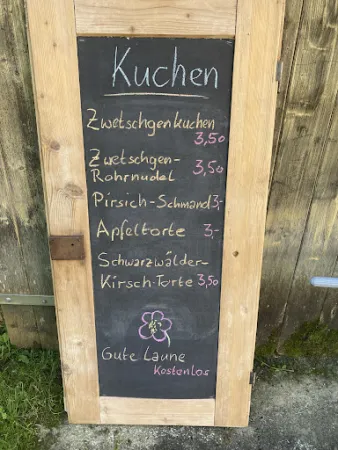 Kuchen
Zwetschgenkuchen
3,50
Zwetschgen-
Rohrnudel 3,50
Pirsich-Schmand 3,-
Apfeltorte 3,-
Schwarzwälder-
Kirsch-Torte 3,50
Gute Laune
Kostenlos